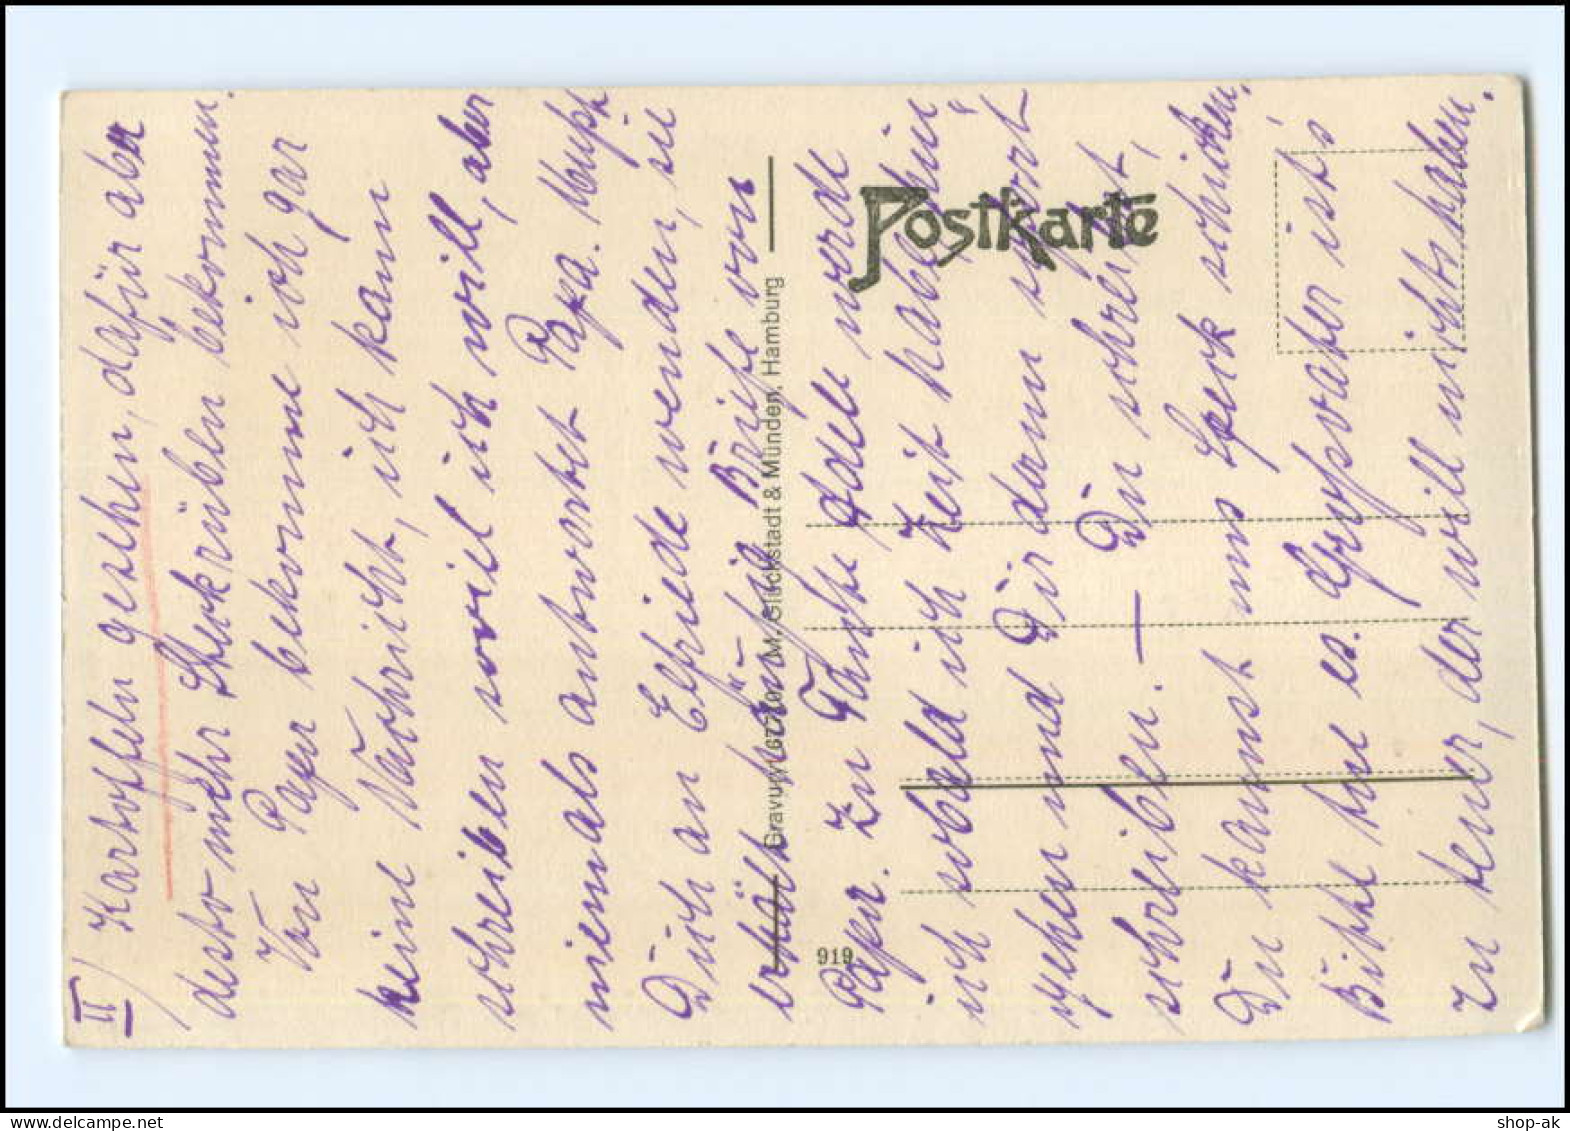 II) Kartoffeln gesehen, dafür aber
desto mehr Steckrüben bekommen.
Von Papa bekomme ich gar
keine Nachricht, ich kann
schreiben soviel ich will, aber
niemals antwortet Papa. Musst
Dich an Elfriede wenden, sie
erhält häufig Briefe von
Papa. Zu Tante Adele werde
ich sobald ich Zeit habe hin
gehen und Dir dann sofort
schreiben. — Du schreibst,
Du kannst uns Speck schicken,
Bitte tue es. Großvater ist's
zu teuer, der will nichts haben.
Postkarte
Gravuryt 67709 M. Glückstadt & Münden, Hamburg
919
shop-ak